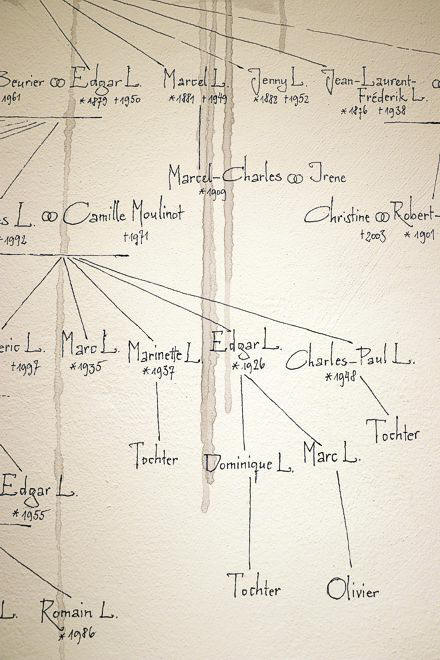 Beurier ⚭ Edgar L. Marcel L. Jenny L. Jean-Laurent-
Fréderik L.
1961 *1879 †1950 *1881 †1949 *1882 †1952 *1876 †1938
Marcel-Charles ⚭ Irene
*1909
s L. ⚭ Camille Moulinot Christine ⚭ Robert-
†1992 †1971 †2003 *1901
eric L. Marc L. Marinette L. Edgar L. Charles-Paul L.
†1997 *1935 *1937 *1926 *1948
Tochter
Tochter Dominique L. Marc L.
Edgar L.
*1955
Tochter Olivier
L. Romain L.
*1986